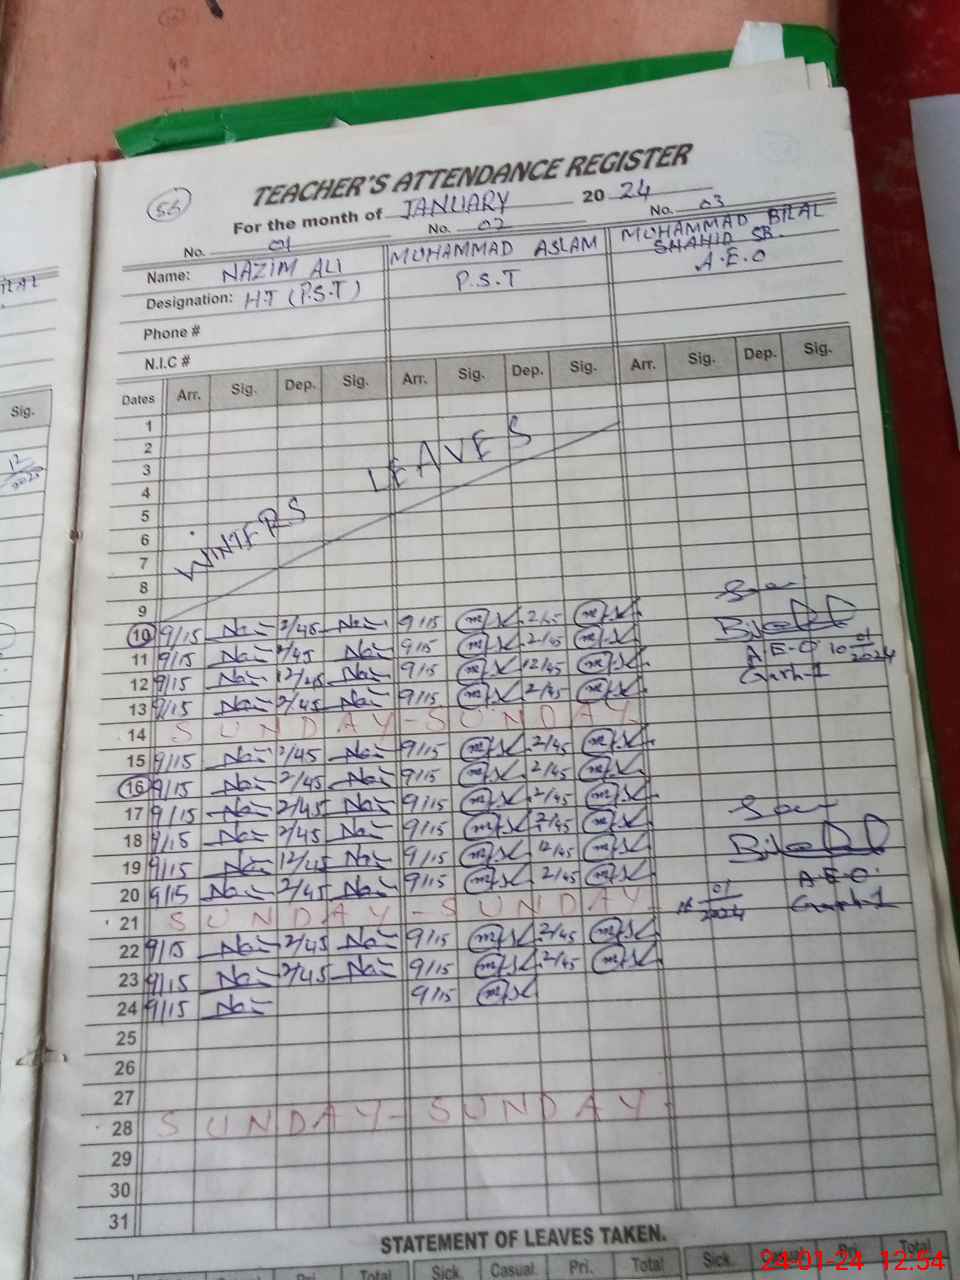 56
TEACHER'S ATTENDANCE REGISTER
For the month of JANUARY 20 24
No. 01 No. 02 No. 03
Name: NAZIM ALI MUHAMMAD ASLAM MUHAMMAD BILAL
SHAHID SB.
Designation: H.T (P.S.T) P.S.T A.E.O
Phone #
N.I.C #
Dates Arr. Sig. Dep. Sig. Arr. Sig. Dep. Sig. Arr. Sig. Dep. Sig.
1
2
3
4
5
6
7
8
9
WINTERS LEAVES
10 9/15 2/45 9/15 2/45
11 9/15 2/45 9/15 2/45
12 9/15 12/45 9/15 12/45
13 9/15 2/45 9/15 2/45
14 SUNDAY-SUNDAY
15 9/15 2/45 9/15 2/45
16 9/15 2/45 9/15 2/45
17 9/15 2/45 9/15 2/45
18 9/15 2/45 9/15 2/45
19 9/15 12/45 9/15 12/45
20 9/15 2/45 9/15 2/45
21 SUNDAY-SUNDAY
22 9/15 2/45 9/15 2/45
23 9/15 2/45 9/15 2/45
24 9/15 9/15
25
26
27
28 SUNDAY-SUNDAY
29
30
31
A.E.O 10 01
2024
A.E.O.
01
2024
STATEMENT OF LEAVES TAKEN.
Pri. Total Sick Casual. Pri. Total Sick. Total
Sig.
12
24-01-24 12:54